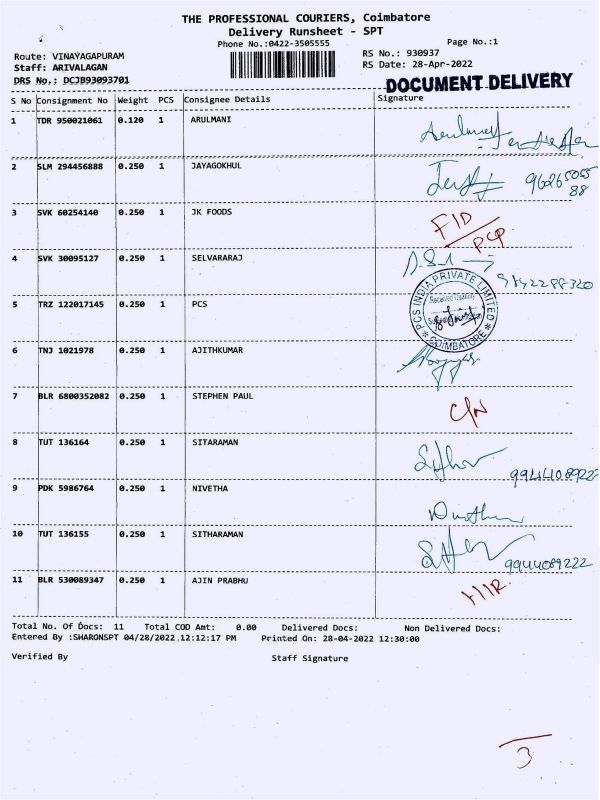 THE PROFESSIONAL COURIERS, Coimbatore
Delivery Runsheet - SPT
Phone No.:0422-3505555
Page No.:1
Route: VINAYAGAPURAM
RS No.: 930937
Staff: ARIVALAGAN
RS Date: 28-Apr-2022
DRS No.: DCJB93093701
DOCUMENT DELIVERY
S No Consignment No Weight PCS Consignee Details Signature
1 TDR 950021061 0.120 1 ARULMANI
2 SLM 294456888 0.250 1 JAYAGOKHUL
3 SVK 60254140 0.250 1 JK FOODS
4 SVK 30095127 0.250 1 SELVARARAJ
9142288320
5 TRZ 122017145 0.250 1 PCS
PCS INDIA PRIVATE LIMITED
COIMBATORE
6 TNJ 1021978 0.250 1 AJITHKUMAR
7 BLR 6800352082 0.250 1 STEPHEN PAUL
C/N
8 TUT 136164 0.250 1 SITARAMAN
9 PDK 5986764 0.250 1 NIVETHA
10 TUT 136155 0.250 1 SITHARAMAN
9944089222
11 BLR 530089347 0.250 1 AJIN PRABHU
Total No. Of Docs: 11 Total COD Amt: 0.00 Delivered Docs: Non Delivered Docs:
Entered By :SHARONSPT 04/28/2022.12:12:17 PM Printed On: 28-04-2022 12:30:00
Verified By Staff Signature
3